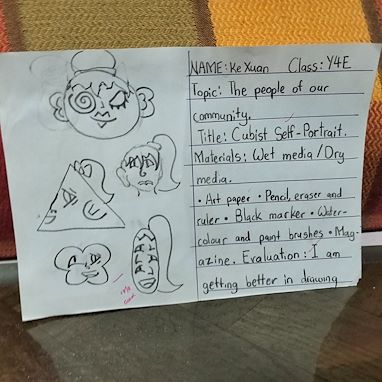 NAME: Ke Xuan Class: Y4E
Topic: The people of our
community.
Title: Cubist Self-Portrait.
Materials: Wet media/Dry
media.
• Art paper • Pencil, eraser and
ruler • Black marker • Water-
colour and paint brushes • Mag-
azine. Evaluation: I am
getting better in drawing